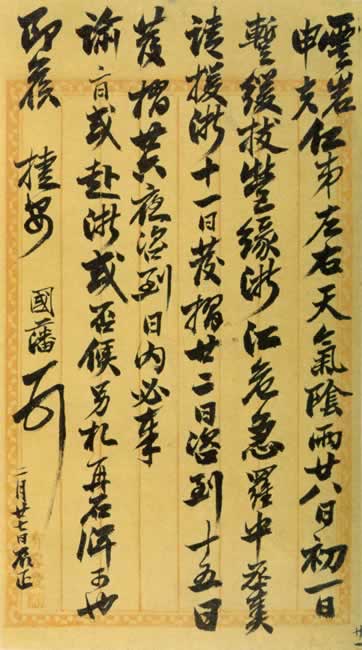 雲岩
申夫
仁弟左右天氣陰雨廿八日初一日
暫緩拔營緣浙江危急羅中丞奏
請援浙十一日發摺廿二日咨到十五日
發摺廿六夜咨到日內必奉
諭旨或赴浙或否候另札再可也
即候 捷安 國藩頓
二月廿七日辰正